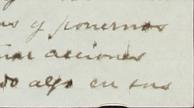 y ponernos
acciones
do algo en sus